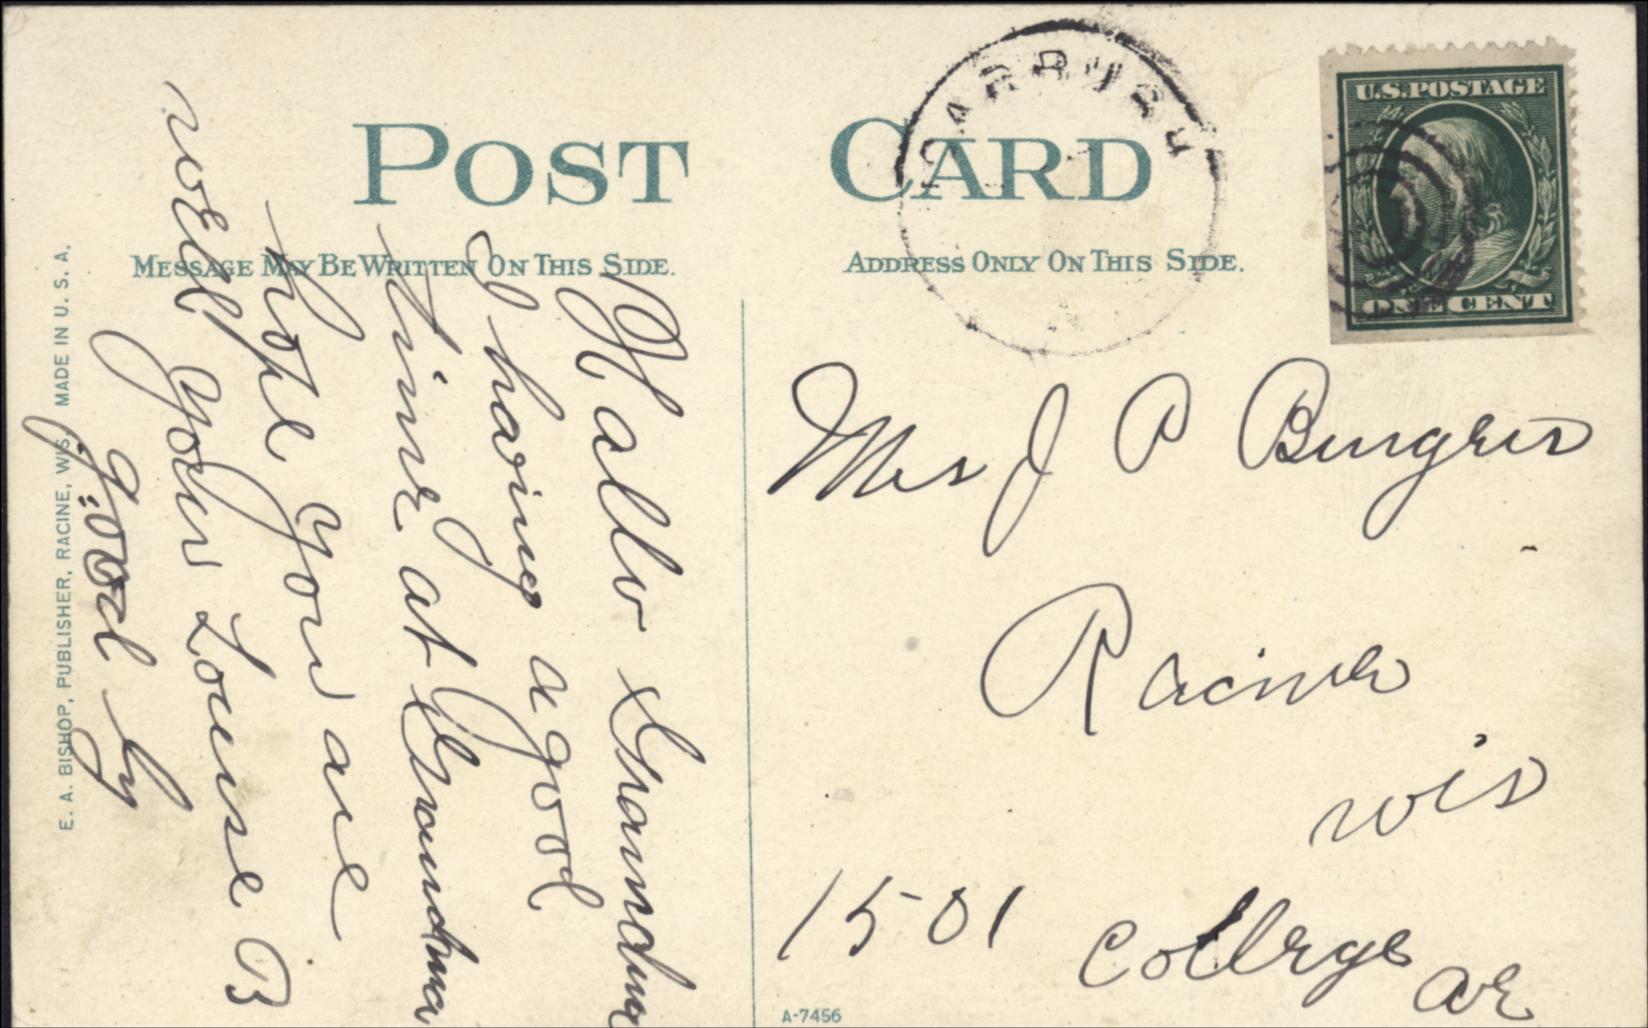 POST CARD
MESSAGE MAY BE WRITTEN ON THIS SIDE.
ADDRESS ONLY ON THIS SIDE.
U.S. POSTAGE
ONE CENT
Hallo Grandma
I having a good
time at Grandma
hope you are
well your Louise B
good by
Mrs J P
Racine
Wis
1501 College Ave
E. A. BISHOP, PUBLISHER, RACINE, WIS. MADE IN U. S. A.
A-7456